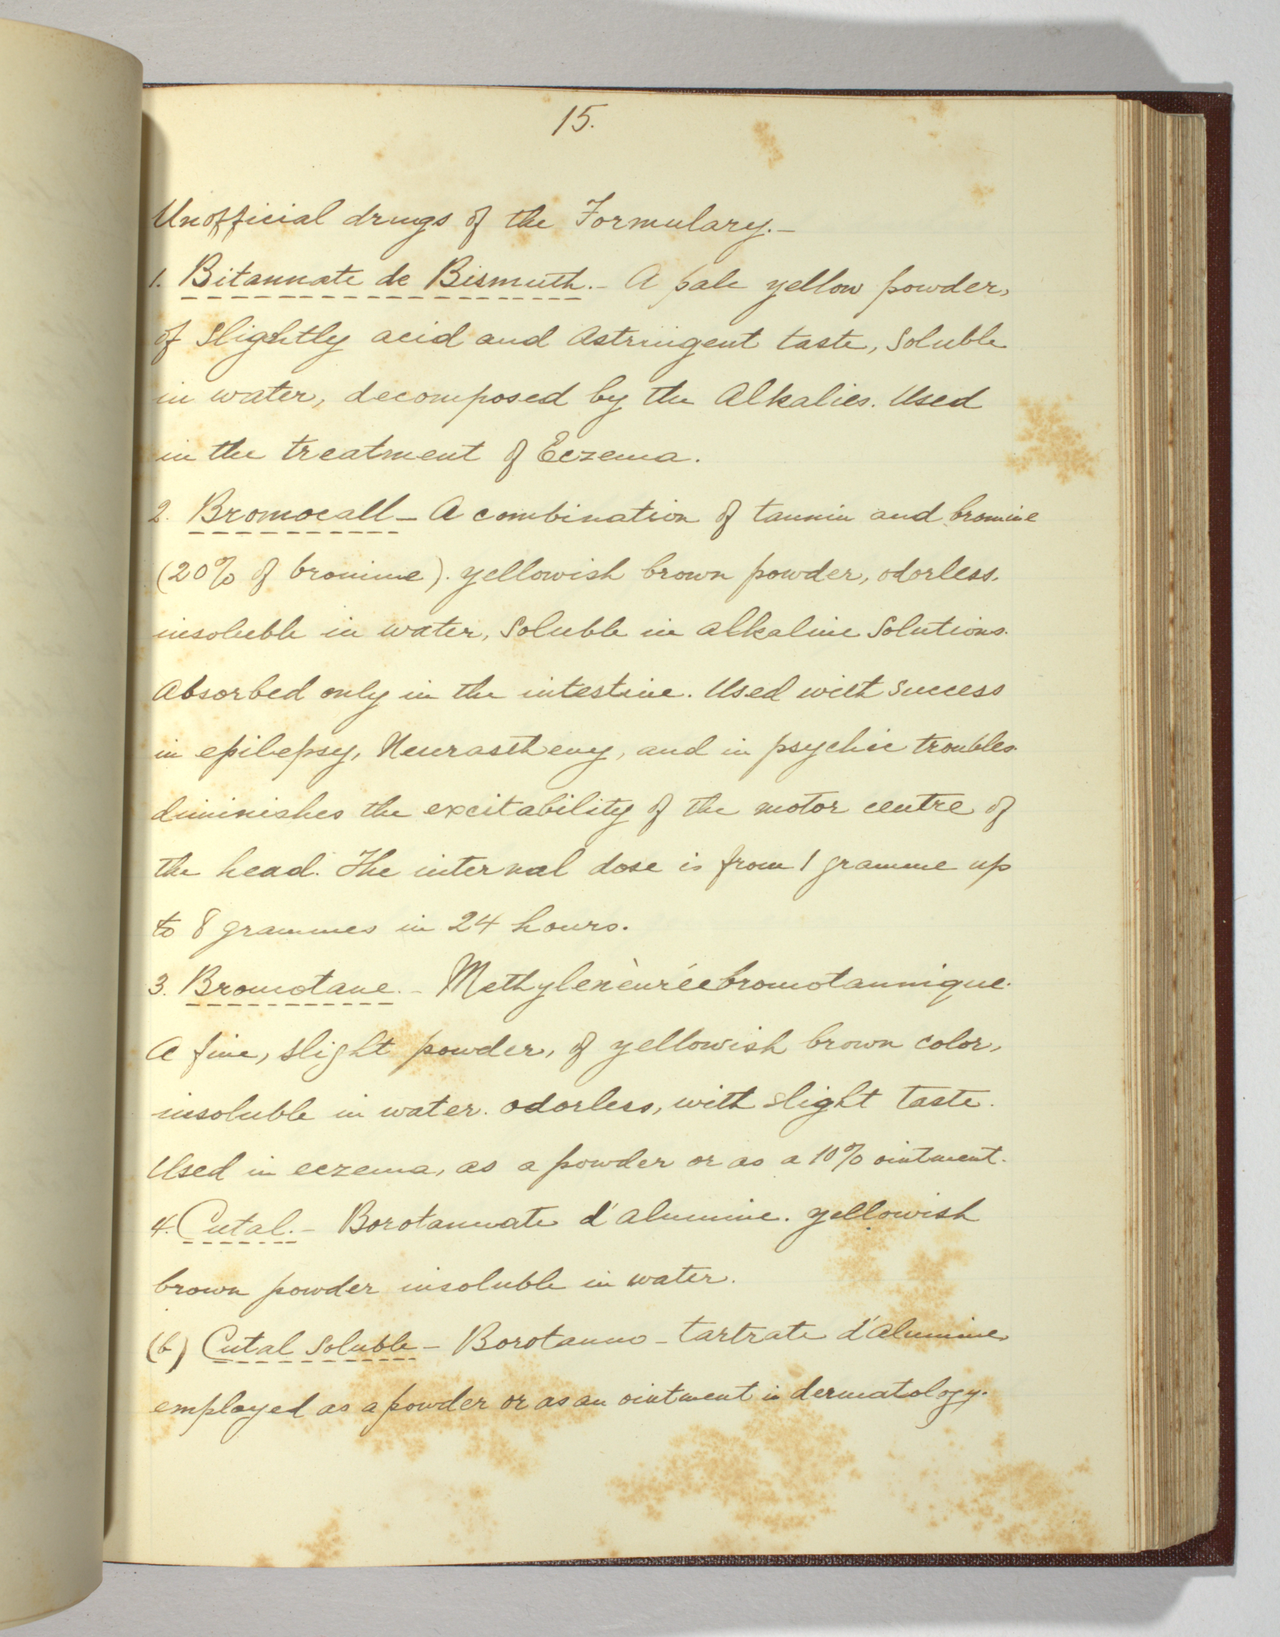 15.
Unofficial drugs of the Formulary.-
1. Bitannate de Bismuth.- A pale yellow powder,
of slightly acid and astringent taste, soluble
in water, decomposed by the Alkalies. Used
in the treatment of Eczema.
2. Bromocall - A combination of tannin and bromine
(20% of bromine). yellowish brown powder, odorless,
insoluble in water, soluble in alkaline solutions.
Absorbed only in the intestine. Used with success
in epilepsy, Neurastheny, and in psychic troubles.
diminishes the excitability of the motor centre of
the head. The internal dose is from 1 gramme up
to 8 grammes in 24 hours.
3. Bromotane.- Methylenèuréebromotannique.
A fine, slight powder, of yellowish brown color,
insoluble in water. odorless, with slight taste.
Used in eczema, as a powder or as a 10% ointment.
4. Cutal.- Borotannate d'alumine. yellowish
brown powder insoluble in water.
(b) Cutal soluble - Borotanno-tartrate d'alumine
employed as a powder or as an ointment in dermatology.